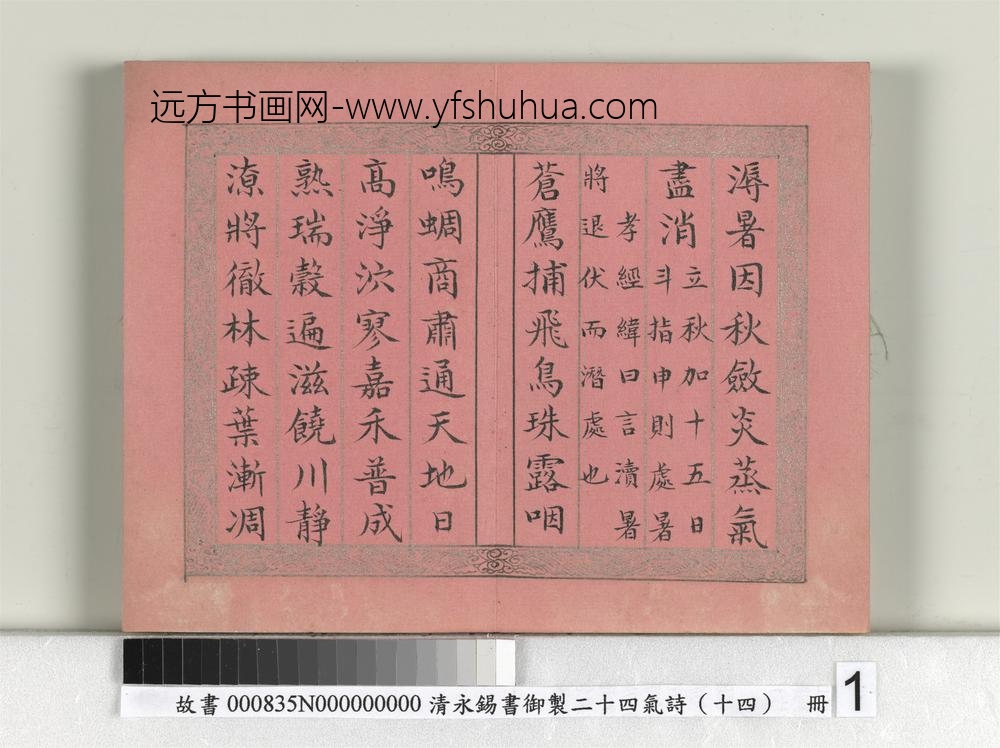 远方书画网-www.yfshuhua.com
溽暑因秋斂炎蒸氣
盡消立秋加十五日
斗指申則處暑
孝經緯曰言瀆暑
將退伏而潛處也
蒼鷹捕飛鳥珠露咽
鳴蜩商肅通天地日
高淨泬寥嘉禾普成
熟瑞穀遍滋饒川靜
潦將徹林疎葉漸凋
故書 000835N000000000 清永錫書御製二十四氣詩（十四） 冊
1